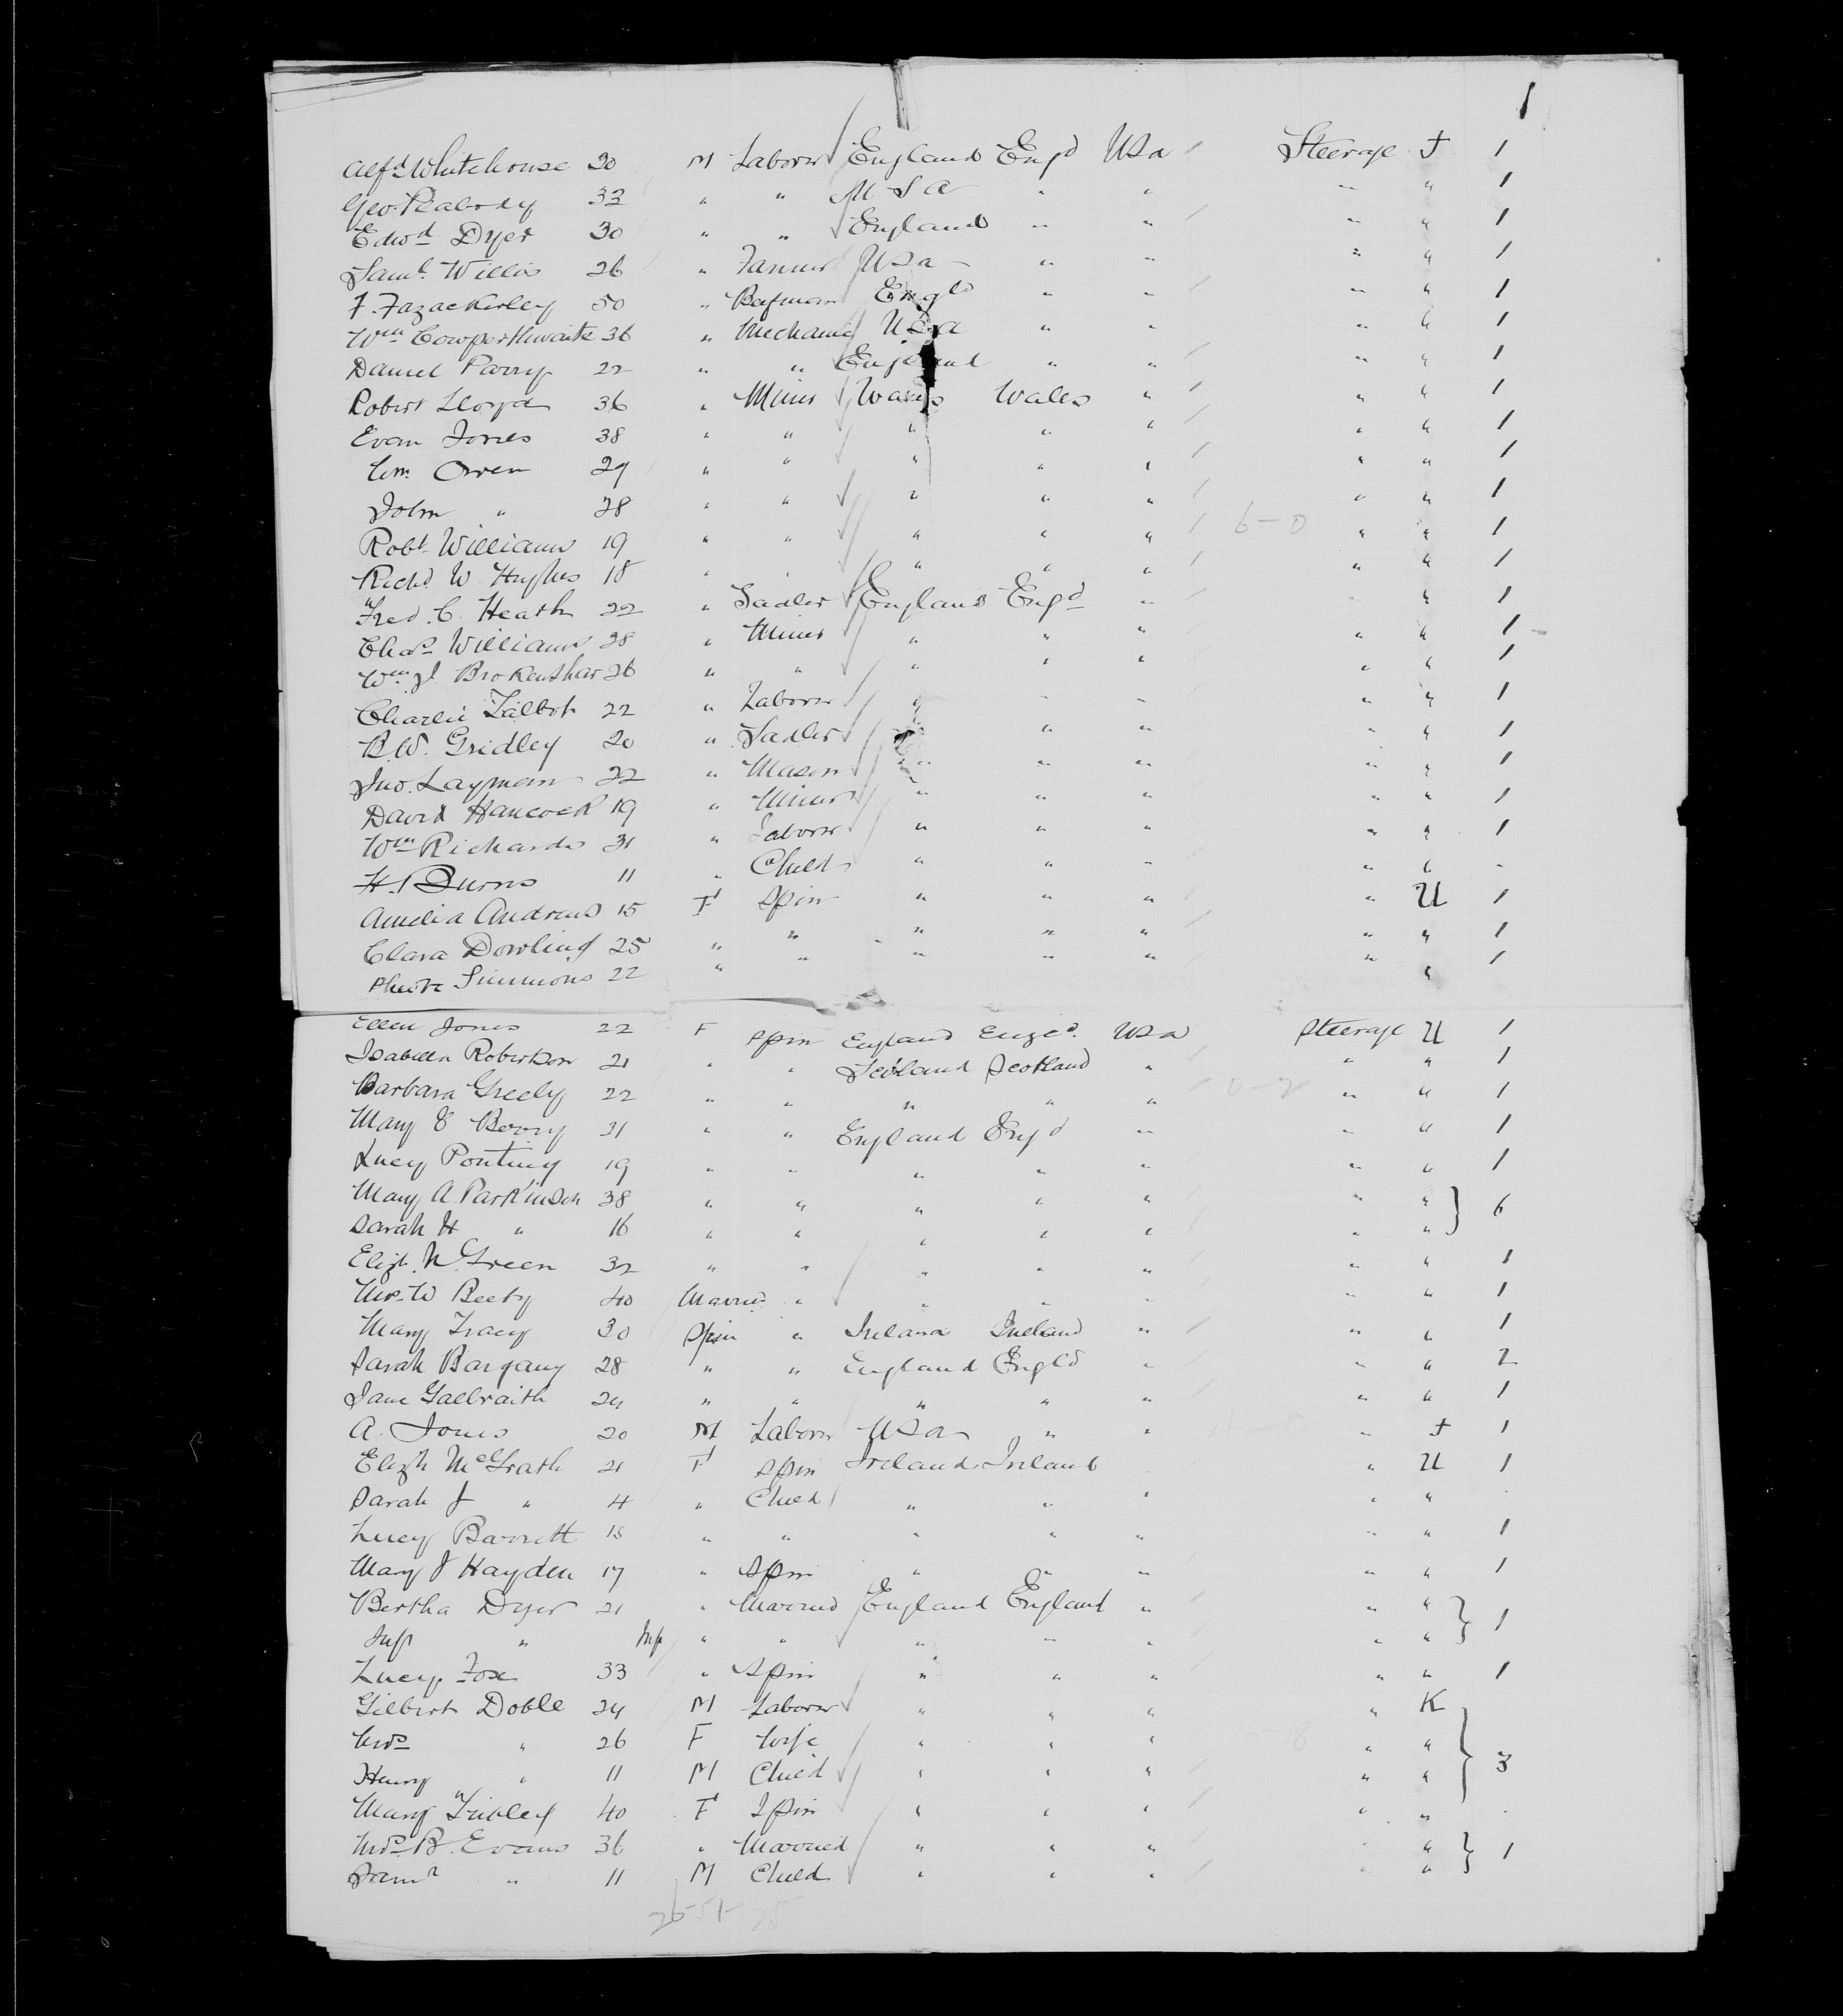 1
Alfd Whitehouse 20 M Laborer England Engd USa Steerage J 1
Geo. Peabody 33 " " U S A " " " " 1
Edwd Dyer 30 " " England " " " " 1
Saml. Willis 26 " Farmer USa " " " " 1
F. Fazackerley 50 " Engld " " " " 1
Wm Cowperthwaite 36 " Mechanic USa " " " " 1
Daniel Parry 22 " " England " " " " 1
Robert Lloyd 36 " Miner Wales Wales " " " 1
Evan Jones 38 " " " " " " " 1
Wm. Owen 29 " " " " " " " 1
John " 28 " " " " " " " 1
Robt. Williams 19 " " " " " 6-0 " " 1
Richd. W. Hughes 18 " " " " " " " 1
Fred. C. Heath 22 " Sadler England Engd " " " 1
Chas. Williams 28 " Miner " " " " " 1
Wm J Brokenshar 26 " " " " " " " 1
Charlie Talbot 22 " Laborer " " " " " 1
B.W. Gridley 20 " Sadler " " " " " 1
Jno. Layman 22 " Mason " " " " " 1
David Hancock 19 " Miner " " " " " 1
Wm Richards 31 " Laborer " " " " " 1
H. Burns 11 " Child " " " " " -
Amelia Andrews 15 F Spin " " " " U 1
Clara Dowling 25 " " " " " " " 1
Simmons 22 " " " " " " " 1
Ellen Jones 22 F Spin England Engd. USa Steerage U 1
Isabella Robertson 21 " " Scotland Scotland " " " 1
Barbara Greely 22 " " " " " 0-2 " " 1
Mary E Berry 31 " " England Engd " " " 1
Lucy Ponting 19 " " " " " " " 1
Mary A. Parkinson 38 " " " " " " " } 6
Sarah H " 16 " " " " " " "
Elizh. McGreen 32 " " " " " " " 1
Mrs. W Beeby 40 Married " " " " " " 1
Mary Tracy 30 Spin " Ireland Ireland " " " 1
Sarah Bargany 28 " " England Engld " " " 2
Jane Galbraith 24 " " " " " " " 1
A. Jones 20 M Laborer USa " " " J 1
Elizh McGrath 21 F Spin Ireland Ireland " U 1
Sarah J " 4 " Child " " " " "
Lucy Barrett 18 " " " " " " " 1
Mary J Hayden 17 " Spin " " " " " 1
Bertha Dyer 21 " Married England England " " " } 1
Inft " Inft " " " " " " "
Lucy Fox 33 " Spin " " " " " 1
Gilbert Doble 24 M Laborer " " " " K
Mrs " 26 F Wife " " " " " } 3
Henry " 11 M Child " " " " "
Mary Tribley 40 F Spin " " " " "
Mrs. B. Evans 36 " Married " " " " " } 1
Saml " 11 M Child " " " " "
26-51-